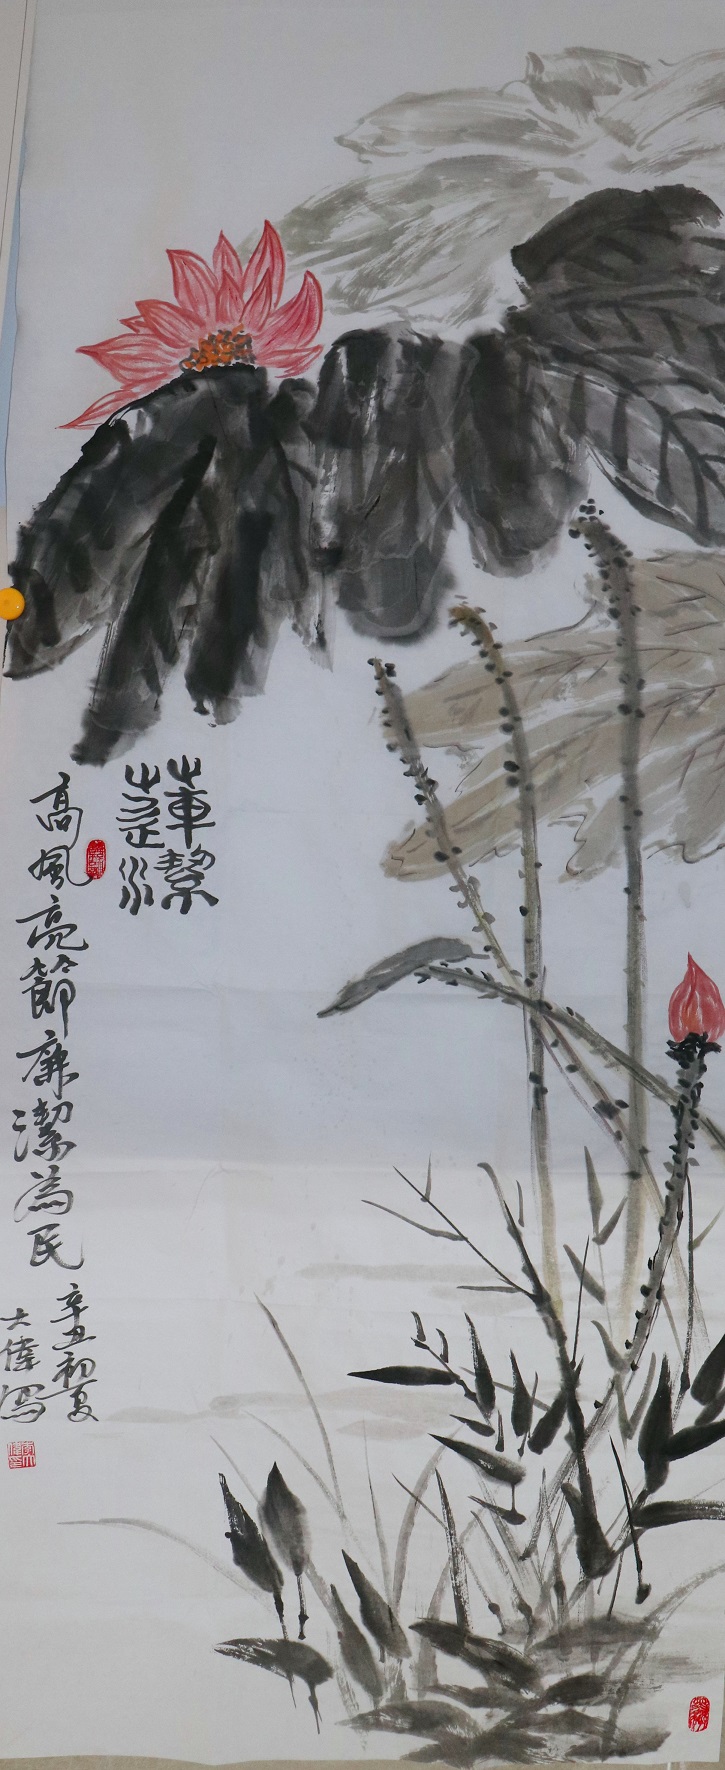 蓮絜
高風亮節廉潔為民
辛丑初夏
大偉寫